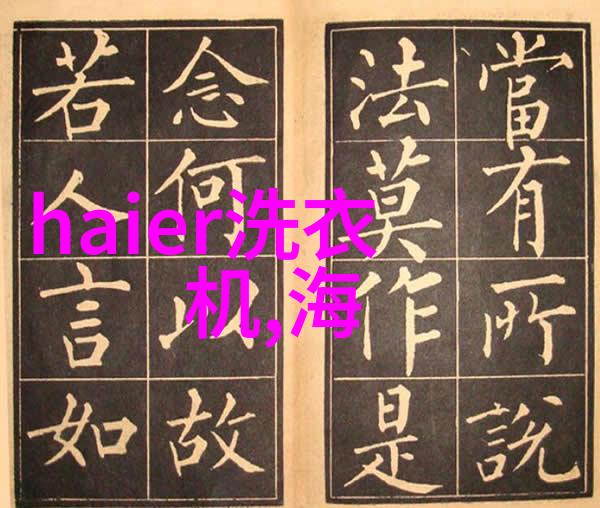 當有所說
法莫作是
念何以故
若人言如
haier洗衣
机,海